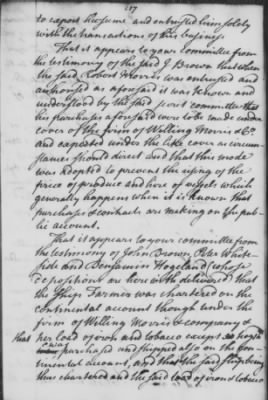 187
to export the same and entrusted him solely
with the transactions of this business
That it appears to your Committee from
the testimony of the said J Brown that when
the said Robert Morris was entrusted and
authorised as aforesaid it was known and
understood by the said secret committee that
his purchases aforesaid were to be made under
cover of the firm of Willing Morris & Co.
and exported under the like cover as circum
stances should direct and that this mode
was adopted to prevent the rising of the
price of produce and hire of vessels which
generally happens when it is known that
purchases & contracts are making on the pub
lic account.
That it appears to your committee from
the testimony of John Brown Peter White-
side and Benjamin Hogeland (whose
depositions are herewith delivered) that
the Ship Farmer was chartered on the
continental account though under the
firm of Willing Morris & company &
that her load of iron and tobacco except 20 hogsh
was purchased and shipped also on the con
tinental account, and that the said ship being
thus chartered and the said load of iron & tobacco